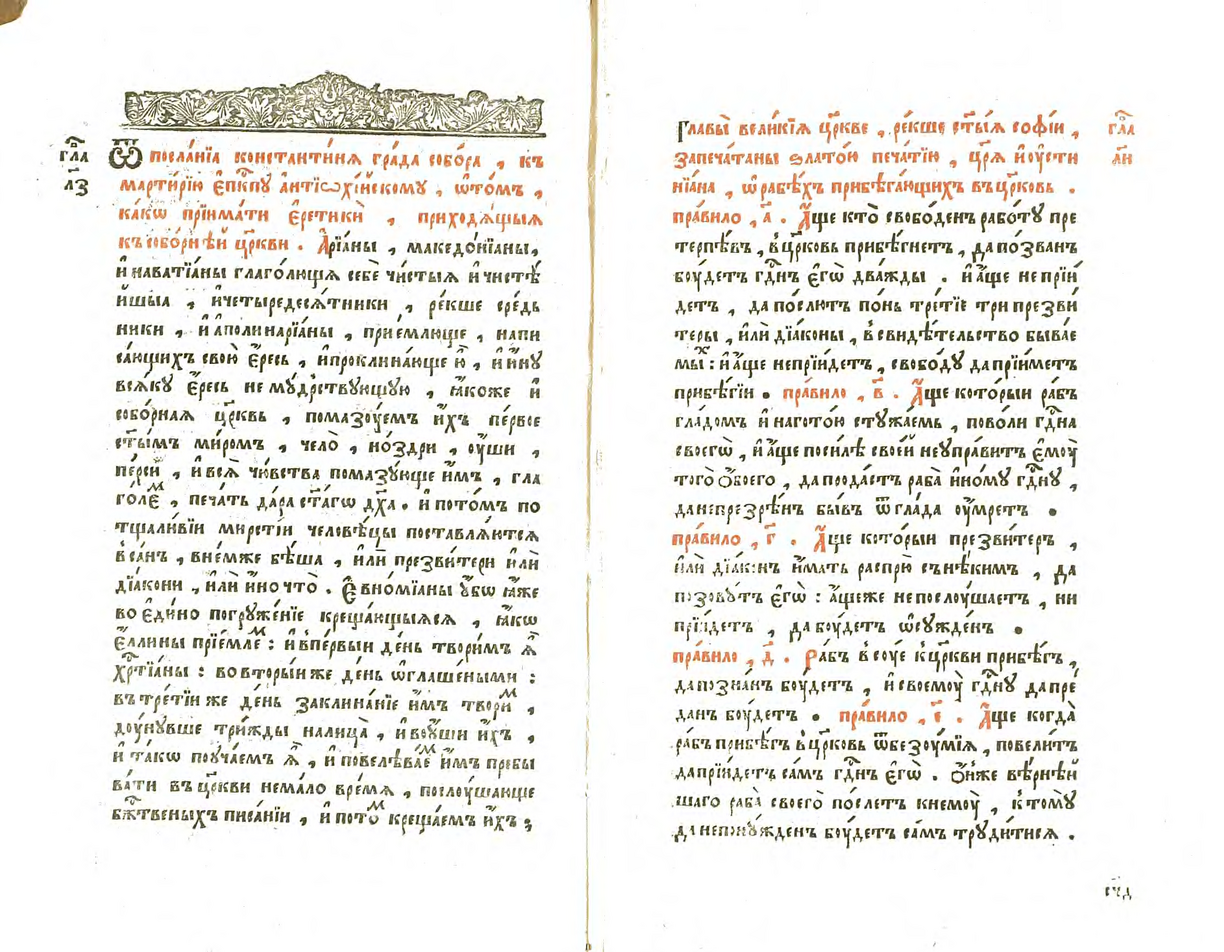 гла҃
л҃з
Ѿ посла́нїѧ константи́нѧ гра́да собо́ра , къ
марти́рїю є҆пⷭ҇кпу а҆нтїѡхі́йскому , ѡ҆то́мъ ,
ка́кѡ прїима́ти є҆ретикѝ , приходѧ́щыѧ
къ собо́рнѣй цр҃кви . А҆рїа́ны , македонїа́ны,
и҆ наватїа́ны глаго́лющѧ себѐ чи́стыѧ и҆ чистѣ́
йшыѧ , и҆четыредесѧ́тники , ре́кше сре́дь
ники , и҆ а҆полинарїа́ны , прие́млюще , напи
са́ющихъ свою̀ є҆́ресь , и҆проклина́юще ю҆̀ , и҆ и҆́ну
всѧ́ку є҆́ресь не му́дрствующую , ꙗ҆́коже и҆
собо́рнаѧ цр҃квь , помазу́емъ и҆́хъ пе́рвое
ст҃ы́мъ ми́ромъ , чело̀ , но́здри , ѹ҆́ши ,
пе́рси , и҆ всѧ̀ чю́вства помазу́юще и҆̀мъ , гла
го́леⷨ , печа́ть да́ра ст҃а́гѡ дх҃а . и҆ пото́мъ по
тщали́вїи мирсті́и человѣ́цы поставлѧ́ютсѧ
в са́нъ , вне́мже бѣ́ша , и҆лѝ презви́тери и҆лѝ
дїа́кони , и҆лѝ и҆́но что̀ . Є҆вномїа́ны ѹ҆́бѡ ꙗ҆̀же
во є҆ди́но погруже́нїе креща́ющыѧсѧ , ꙗ҆́кѡ
є҆́ллины прїе́млеⷨ : и҆ впе́рвыи де́нь твори́мъ ѧ҆̀
хрⷭ҇тїа́ны : во вторы́и же де́нь ѡ҆глаше́ными :
въ тре́тїи же де́нь заклина́нїе и҆̀мъ твори́ⷨ ,
ду́нувше три́жды налица̀ , и҆ во ѹ҆́ши и҆́хъ ,
и҆ та́кѡ поуча́емъ ѧ҆̀ , и҆ повелѣва́еⷨ и҆̀мъ пребы
ва́ти въ цр҃кви нема́ло вре́мѧ , послу́шающе
бж҃твеныхъ писа́нїи , и҆ пото́ⷨ креща́емъ и҆́хъ ;
Главы̀ вели́кїѧ цр҃кве , ре́кше ст҃ы́ѧ софі́и ,
запеча́таны злато́ю печа́тїю , цр҃ѧ̀ и҆ѹсти
нїа́на , ѡ҆ рабѣ́хъ прибѣга́ющихъ въ цр҃ковь .
пра́вило , а҃ . А҆́ще кто̀ свобо́денъ рабо́ту пре
терпѣ́въ , в цр҃ковь прибѣ́гнетъ , да по́званъ
бу́детъ гдⷭ҇нъ є҆гѡ̀ два́жды . и҆ а҆́ще не прїи́
детъ , да по́слютъ по́нь тре́тїе три презви́
теры , и҆лѝ дїа́коны , в свидѣ́тельство быва́е
мыⷯ : и҆ а҆́ще непрїи́детъ , свобо́ду да прїи́метъ
прибѣ́гїи . пра́вило , в҃ . А҆́ще кото́рыи ра́бъ
гла́домъ и҆ нагото́ю стужа́емь , пово́ли гдⷭ҇на
своегѡ̀ , и҆ а҆́ще поси́лѣ свое́й неупра́витъ є҆мѹ̀
того̀ ѻ҆бо́его , да прода́стъ раба̀ и҆но́му гдⷭ҇ну ,
да непрезрѣ́нъ бы́въ ѿ гла́да ѹ҆́мретъ .
пра́вило , г҃ . А҆́ще кото́рыи презви́теръ ,
и҆лѝ дїа́конъ и҆́мать ра́спрю с нѣ́кимъ , да
позову́тъ є҆гѡ̀ : а҆́щеже непослу́шаетъ , ни
прїи́детъ , да бу́детъ ѡ҆сужде́нъ .
пра́вило , д҃ . Ра́бъ в су́е к цр҃кви прибѣ́гъ ,
да позна́нъ бу́детъ , и҆ своемꙋ̀ гдⷭ҇ну да пре́
данъ бу́детъ . пра́вило , є҃ . А҆́ще когда̀
ра́бъ прибѣ́гъ в цр҃ковь ѿ безу́мїѧ , повели́тъ
да прїи́детъ са́мъ гдⷭ҇нъ є҆гѡ̀ . ѻ҆́нже вѣ́рнѣй
шаго раба̀ своего̀ по́слетъ к немѹ̀ , к тому̀
да непону́жденъ бу́детъ са́мъ труди́тисѧ .
гла҃
л҃и
сч҃д